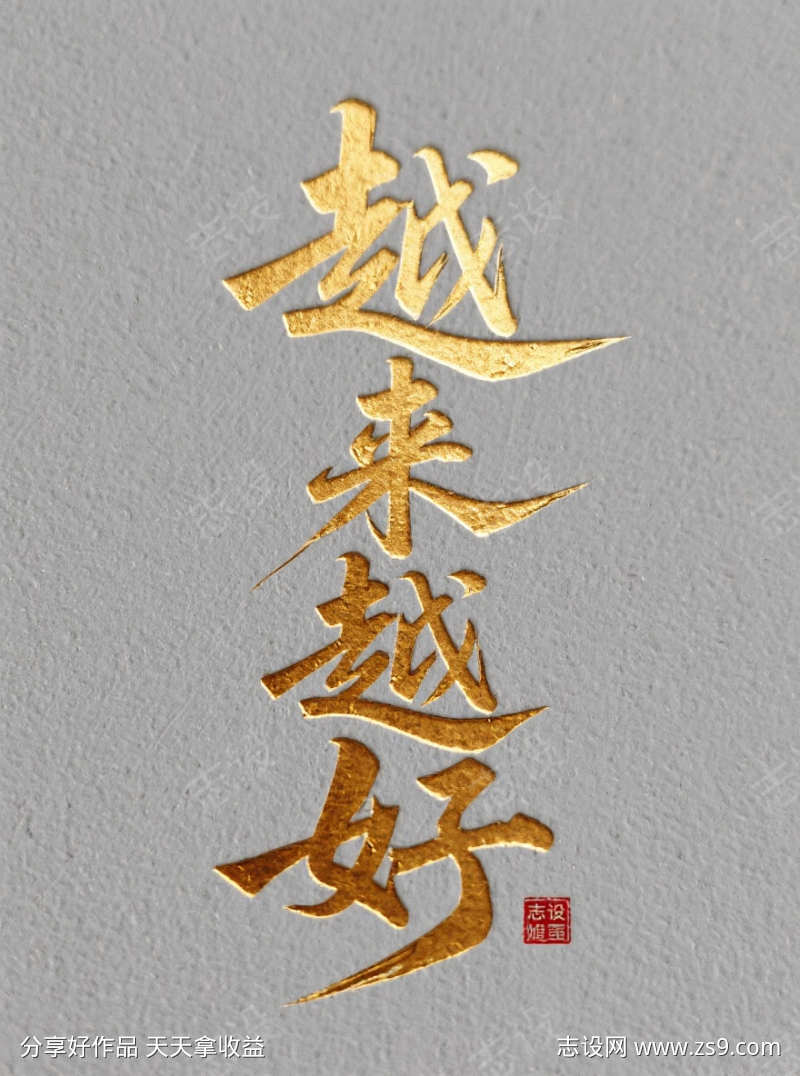 越来越好
分享好作品 天天拿收益
志设网 www.zs9.com
志设